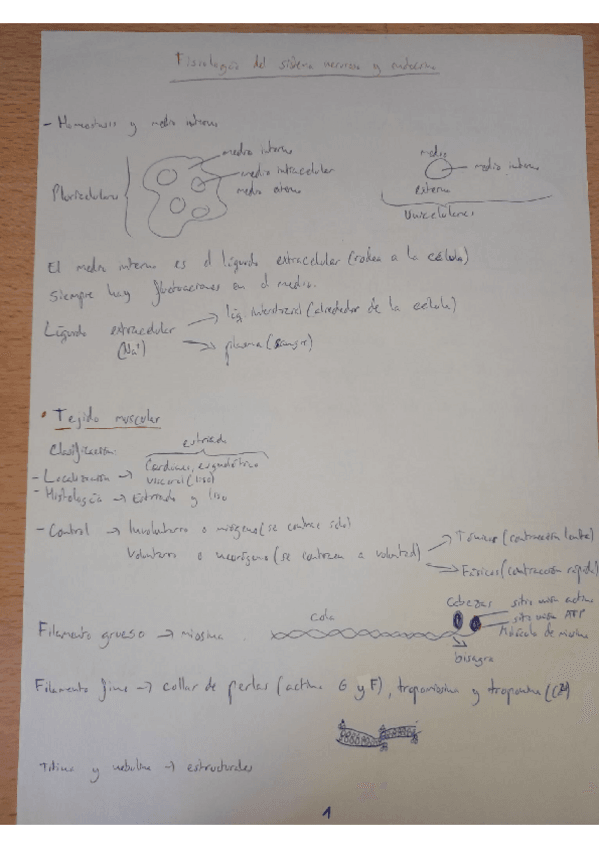 Fisiología del sistema nervioso y endocrino
- Homeostasis y medio interno
Pluricelulares
medio interno
medio intracelular
medio externo
medio
externo
medio interno
Unicelulares
El medio interno es el líquido extracelular (rodea a la célula)
Siempre hay fluctuaciones en el medio.
Líquido extracelular (Na⁺)
→ líq. intersticial (alrededor de la célula)
→ plasma (sangre)
• Tejido muscular
Clasificación:
estriado
- Localización → Cardiaco, esquelético
visceral (liso)
- Histología → Estriado y liso
- Control → Involuntario o miógeno (se contrae solo)
Voluntario o neurógeno (se contraen a voluntad)
→ Tónicos (contracción lenta)
→ Fásicos (contracción rápida)
Filamento grueso → miosina
cola
Cabezas
sitio unión actina
sitio unión ATP
Molécula de miosina
bisagra
Filamento fino → collar de perlas (actina G y F), tropomiosina y troponina
Titina y nebulina → estructurales
1